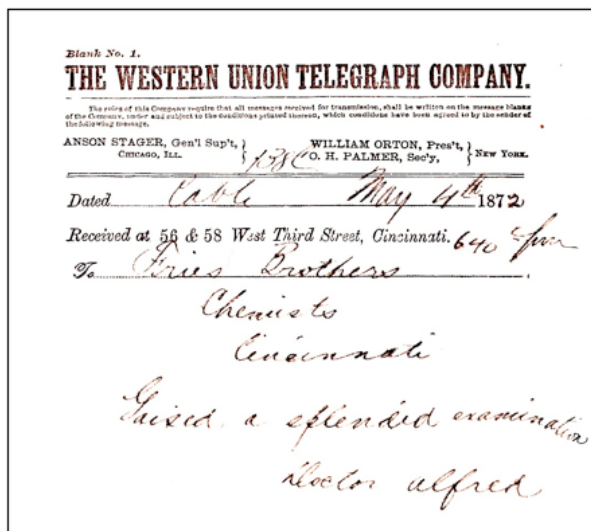 Blank No. 1.
THE WESTERN UNION TELEGRAPH COMPANY.
The rules of this Company require that all messages received for transmission, shall be written on the message blanks
of the Company, under and subject to the conditions printed thereon, which conditions have been agreed to by the sender of
the following message.
ANSON STAGER, Gen'l Sup't, WILLIAM ORTON, Pres't,
CHICAGO, ILL. O. H. PALMER, Sec'y, NEW YORK.
Dated Cable May 4th 1872
Received at 56 & 58 West Third Street, Cincinnati. 640
To Fries Brothers
Chemists
Cincinnati
a splendid examination
Doctor alfred